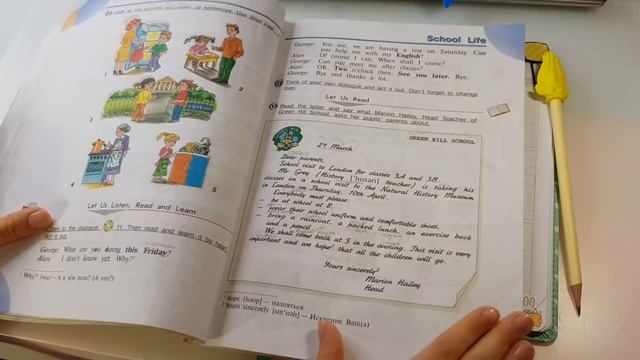 Look at the pictures and make up sentences.
1
2
3
4
5
Let Us Listen, Read and Learn
to the dialogue. 11. Then read and learn it by heart.
George: What are you doing this Friday?
Alan: I don't know yet. Why?¹
¹ Why? [waɪ] — А в чём дело? (А что?)
School Life
George: You see, we are having a test on Saturday. Can
you help me with my English?
Alan: Of course I can. When shall I come?
George: Can you meet me after classes?
Alan: OK. Two o'clock then. See you later. Bye.
George: Bye and thanks a lot.
Think of your own dialogue and act it out. Don't forget to change
Let Us Read
Read the letter and say what Marion Hailey, Head Teacher of
Green Hill School, asks her pupils' parents about.
GREEN HILL SCHOOL
24 March
Dear parents,
School visit to London for classes 3A and 3B.
Mr Grey (History ['hɪstərɪ] teacher) is taking his
classes on a school visit to the Natural History Museum
in London on Thursday, 10th April.
Everybody must please:
— be at school at 8,
— wear their school uniform and comfortable shoes,
— bring a raincoat, a packed lunch, an exercise book
and a pencil.
We shall come back at 5 in the evening. This visit is very
important and we hope¹ that all the children will go.
Yours sincerely²
Marion Hailey
Head
¹ hope [həʊp] — надеяться
² Yours sincerely [sɪn'sɪəlɪ] — Искренне Ваш(а)